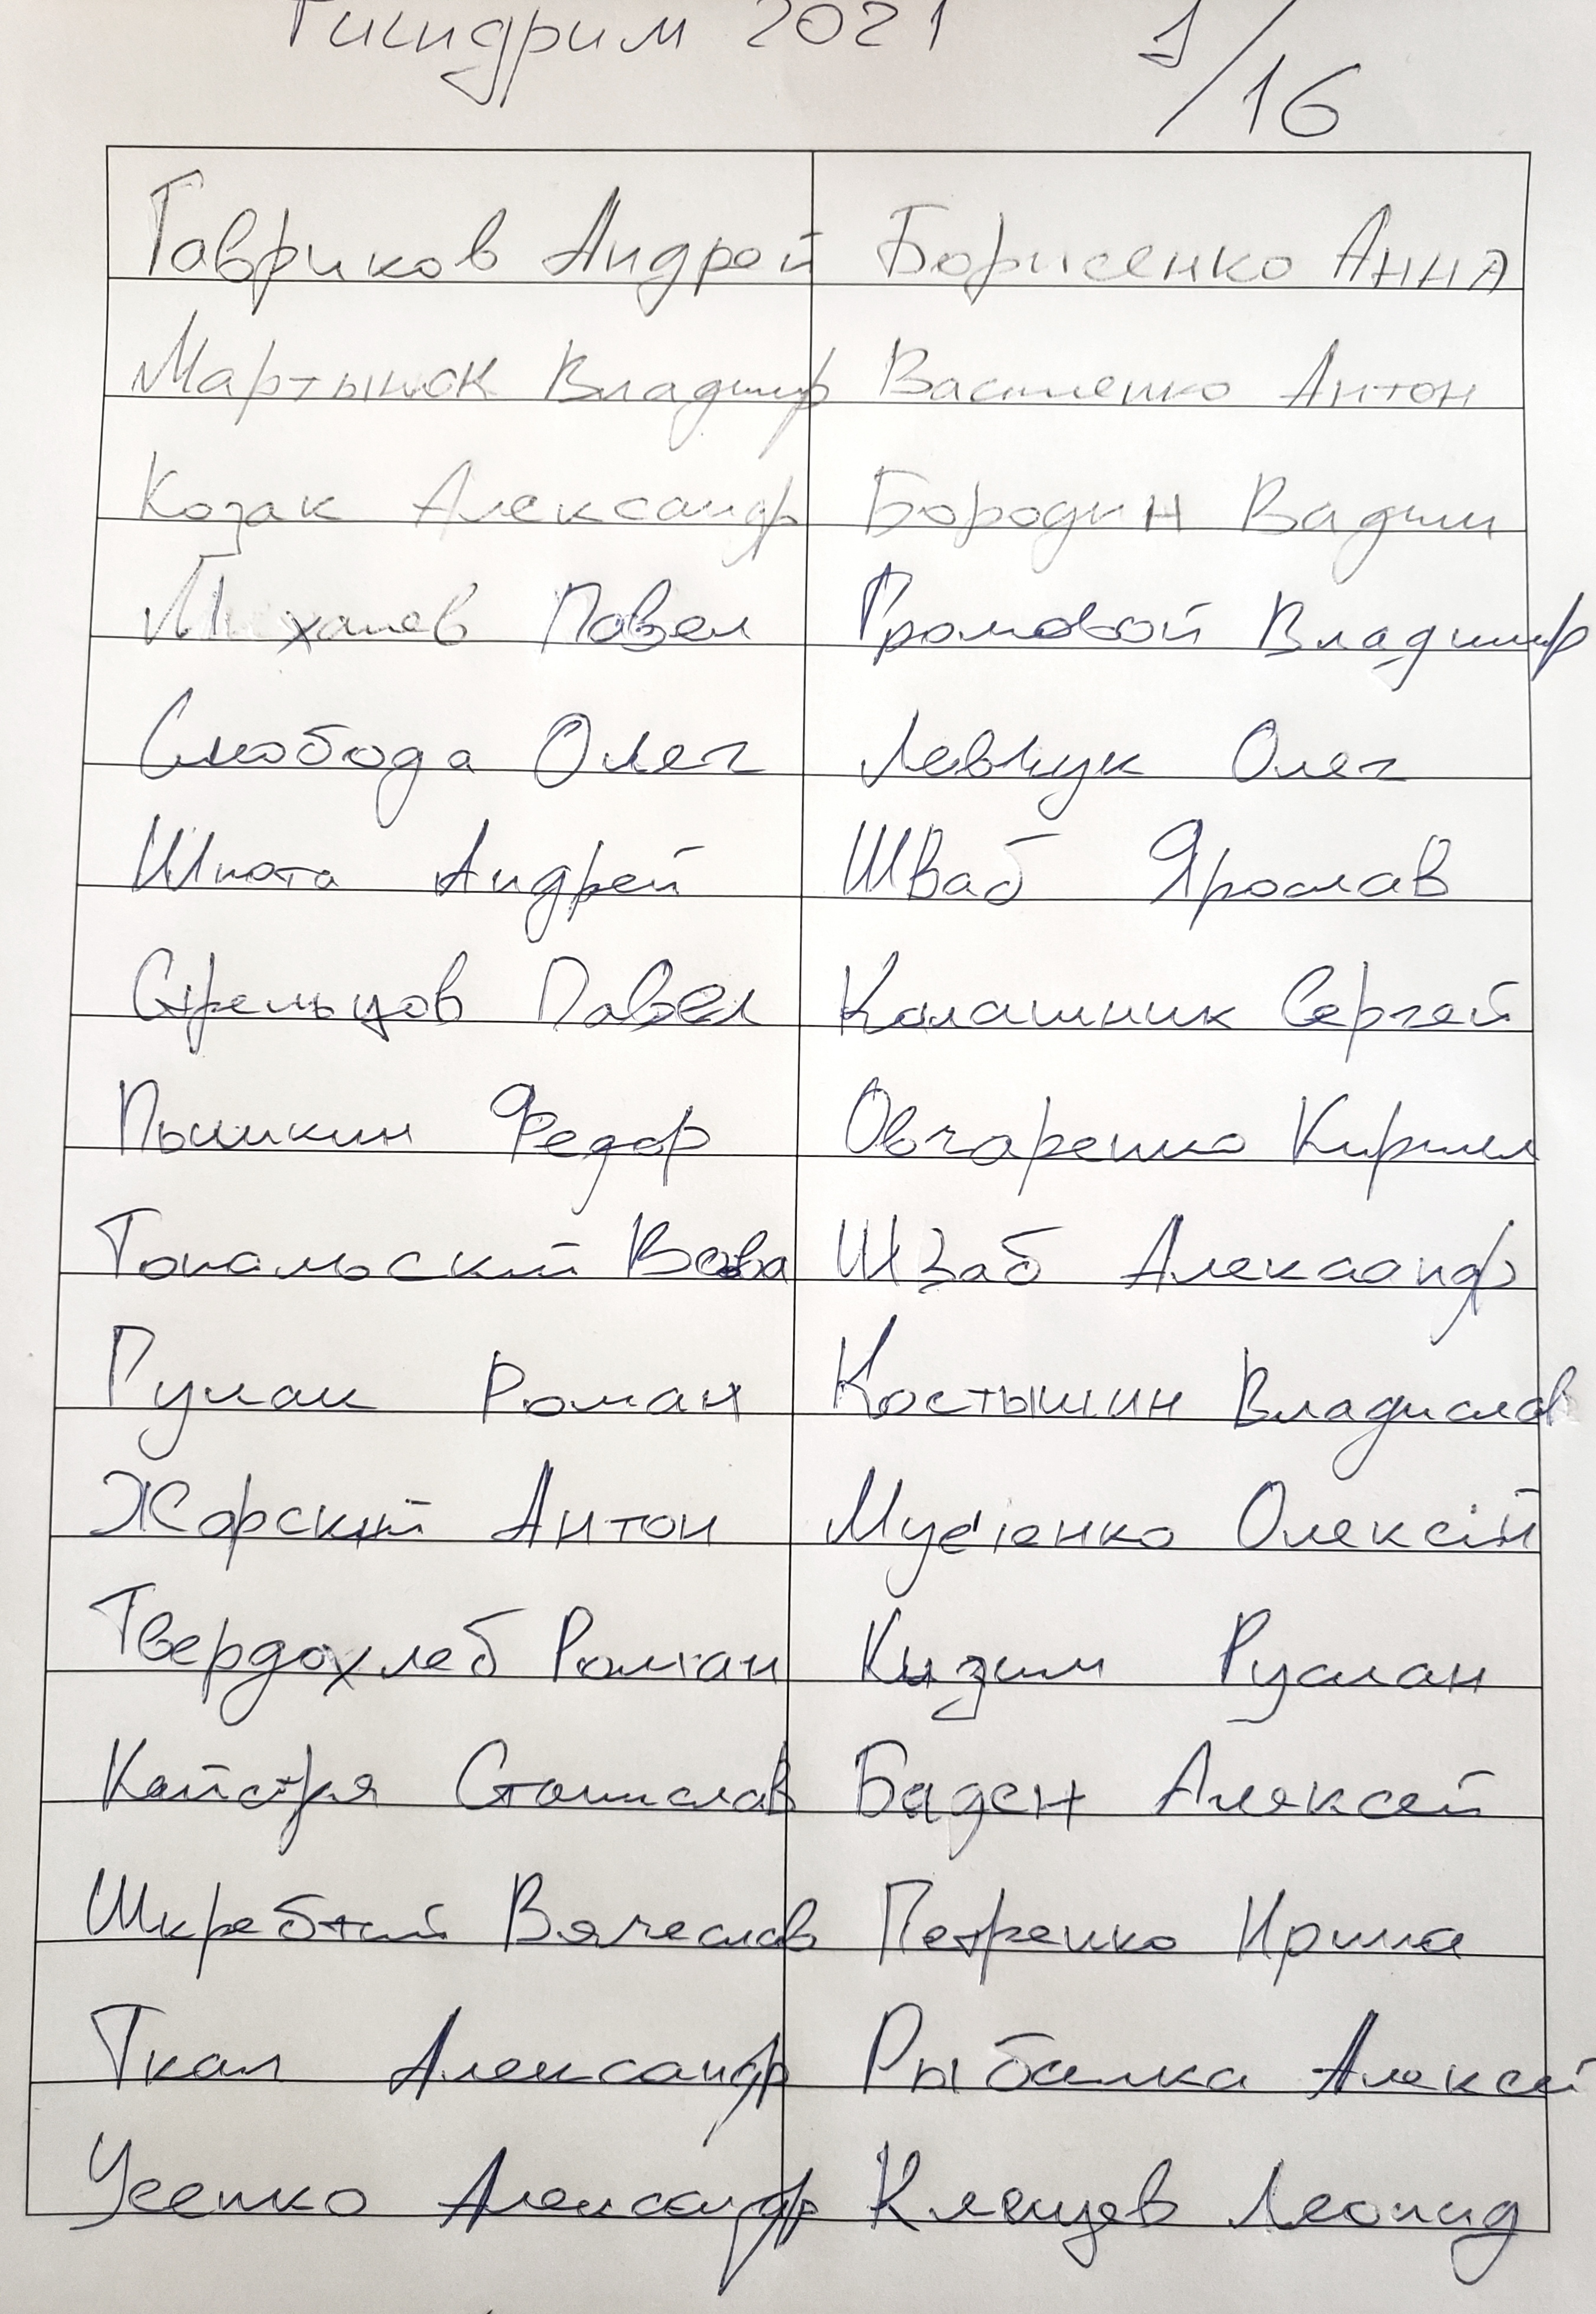 2021 1/16
Гавриков Андрей Борисенко Анна
Мартынюк Владимир Василенко Антон
Козак Александр Бородин Вадим
Михалев Павел Громовой Владимир
Слобода Олег Левчук Олег
Шпота Андрей Шваб Ярослав
Стрельцов Павел Калашник Сергей
Пышкин Федор Овчаренко Кирилл
Топальский Вова Шваб Александр
Гулак Роман Костышин Владислав
Жорский Антон Олексій
Твердохлеб Роман Кизим Руслан
Кайстря Станислав Баден Алексей
Шкребтий Вячеслав Петренко Ирина
Ткач Александр Рыбалка Алексей
Усенко Александр Клевцов Леонид